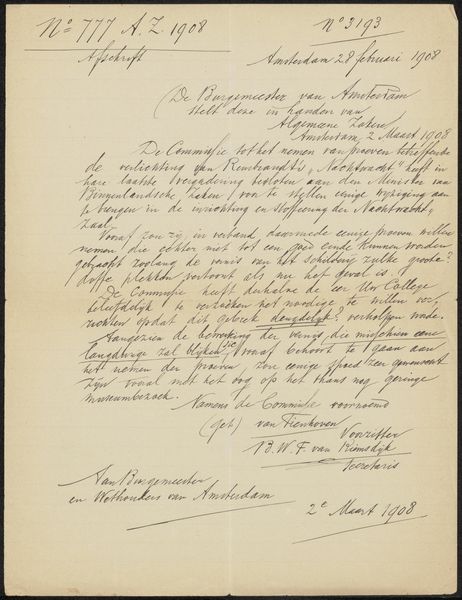 No 777 A.Z. 1908
No 3193
Afschrift
Amsterdam 28 februari 1908
(De Burgemeester van Amsterdam
stelt deze in handen van
Algemene Zaken
Amsterdam, 2 Maart 1908
De Commissie tot het nemen van proeven betreffende
de verlichting van Rembrandt's "Nachtwacht" heeft in
hare laatste vergadering besloten aan den Minister van
Binnenlandsche Zaken, voor te stellen eenige wijziging aan
te brengen in de inrichting en stoffeering der Nachtwacht-
zaal.
Vooraf zou zij, in verband daarmede eenige proeven willen
nemen die echter niet tot een goed einde kunnen worden
gebracht zoolang de vernis van het schilderij zulke groote
doffe plekken vertoont als nu het geval is.
De Commissie heeft derhalve de eer Uw College
beleefdelijk te verzoeken het noodige te willen ver-
richten opdat dit gebrek deugdelijk? verholpen worde.
Aangezien de bewerking der vernis, die misschien eene
langdurige zal blijken, (sic) vooraf behoort te gaan aan
het nemen der proeven, zou eenige spoed zeer gewenscht
zijn vooral met het oog op het thans nog geringe
museumbezoek.
Namens de Commissie voornoemd
(get) van Tienhoven
Voorzitter
B. W. F. van Riemsdijk
Secretaris
Aan Burgemeester
en Wethouders van Amsterdam
2e Maart 1908